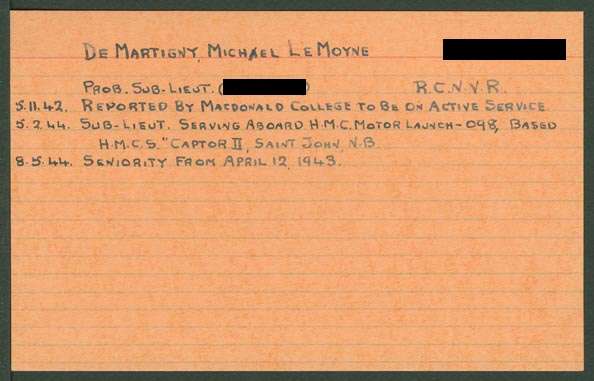 DE MARTIGNY, MICHAEL LEMOYNE
PROB. SUB-LIEUT. ( ) R.C.N.V.R.
5.11.42. REPORTED BY MACDONALD COLLEGE TO BE ON ACTIVE SERVICE.
5.2.44. SUB-LIEUT. SERVING ABOARD H.M.C. MOTOR LAUNCH-098, BASED
H.M.C.S. "CAPTOR II, SAINT JOHN, N.B.
8.5.44. SENIORITY FROM APRIL 12, 1943.